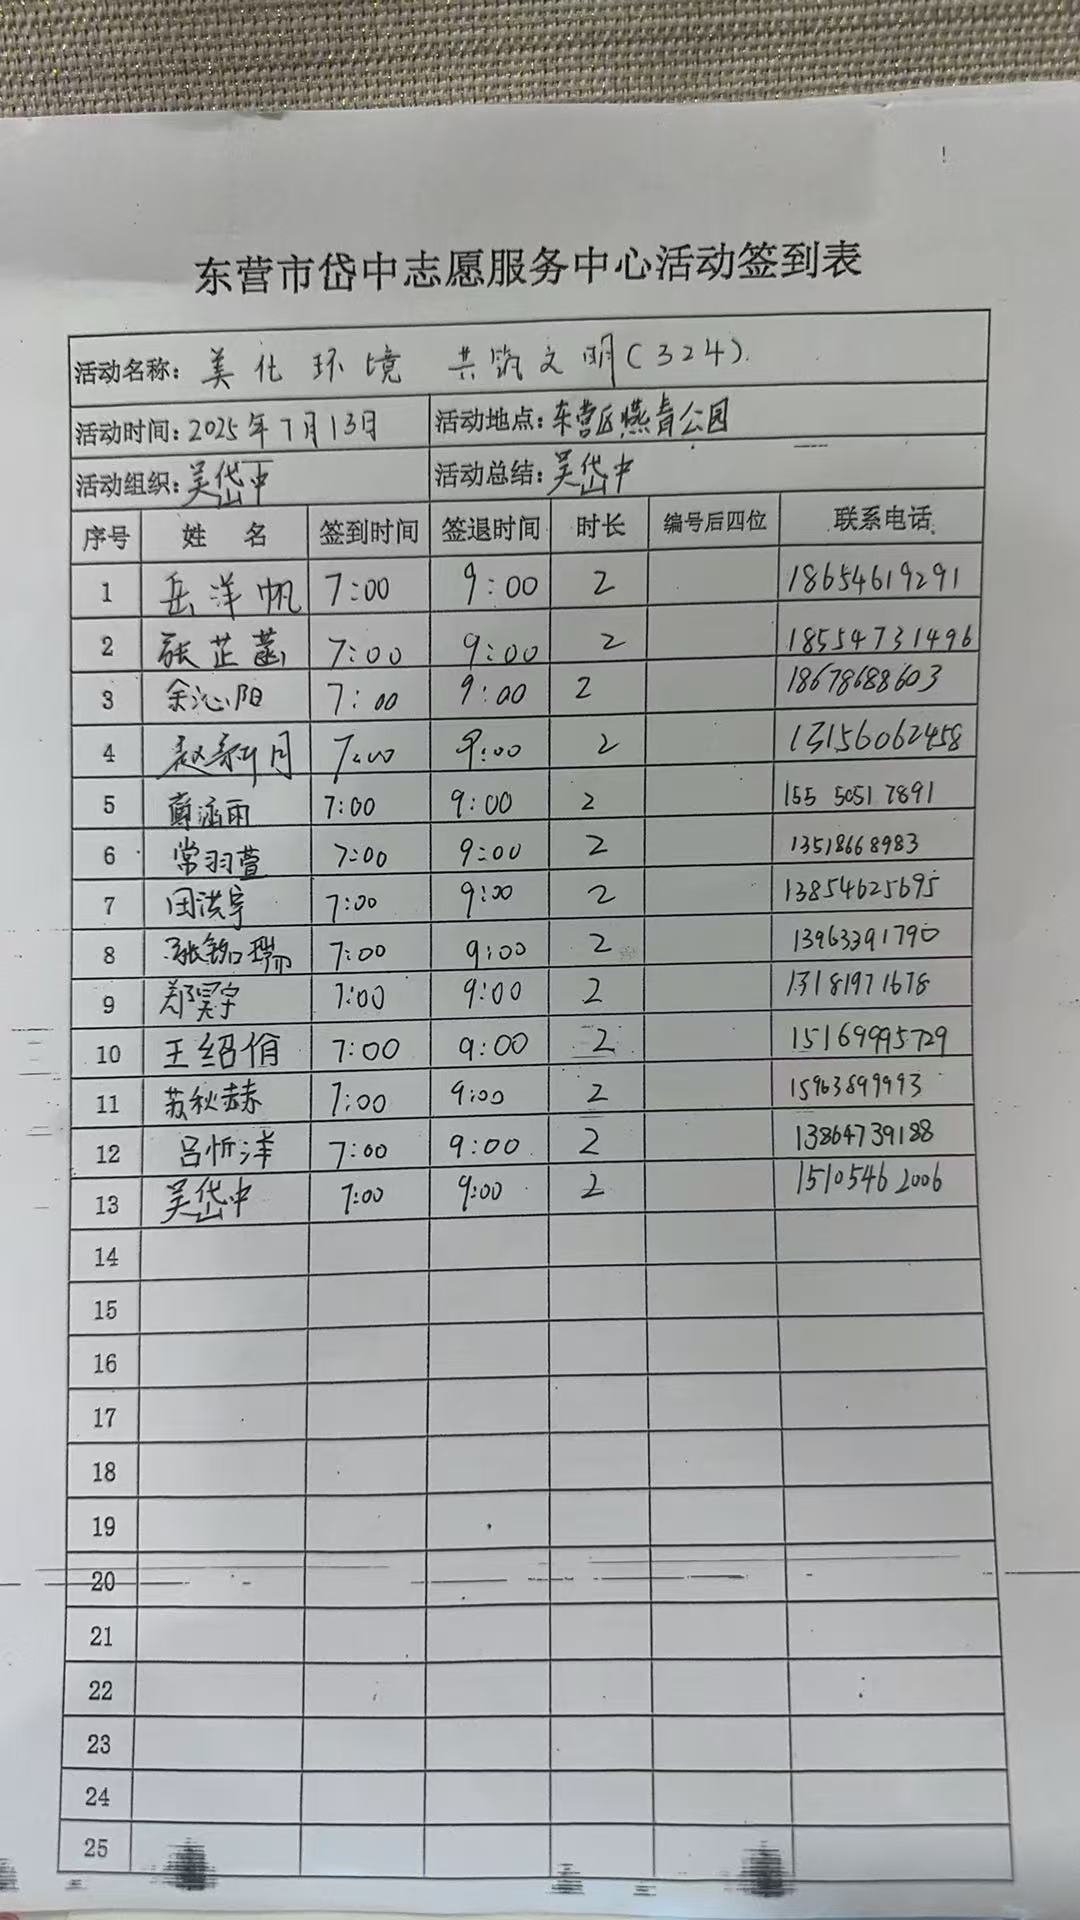 东营市岱中志愿服务中心活动签到表
活动名称: 美化环境 共筑文明(324).
活动时间: 2025年7月13日 活动地点: 东营区燕青公园
活动组织: 吴岱中 活动总结: 吴岱中
序号 姓 名 签到时间 签退时间 时长 编号后四位 联系电话
1 岳洋帆 7:00 9:00 2 18654619291
2 张芷菡 7:00 9:00 2 18554731496
3 余沁阳 7:00 9:00 2 18678688603
4 赵新月 7:00 9:00 2 13156062458
5 涵雨 7:00 9:00 2 155 5051 7891
6 常羽萱 7:00 9:00 2 13518668983
7 田洪宇 7:00 9:00 2 13854625695
8 张铭瑞 7:00 9:00 2 13963391790
9 郑昊宇 7:00 9:00 2 13181971678
10 王绍俏 7:00 9:00 2 15169995729
11 苏秋赫 7:00 9:00 2 15963899993
12 吕忻泽 7:00 9:00 2 13864739188
13 吴岱中 7:00 9:00 2 15105462006
14
15
16
17
18
19
20
21
22
23
24
25